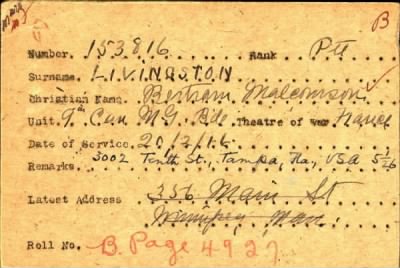 B
Number. 153816 Rank Pte
Surname. LIVINGSTON
Christian Name. Bertram Malcomson
Unit. Can M.G. Bde. Theatre of war France
Date of Service.
Remarks 3002 Tenth St., Tampa, Fla, USA 5/26
Latest Address 356 Main St
Winnipeg Man
Roll No. B. Page 4927